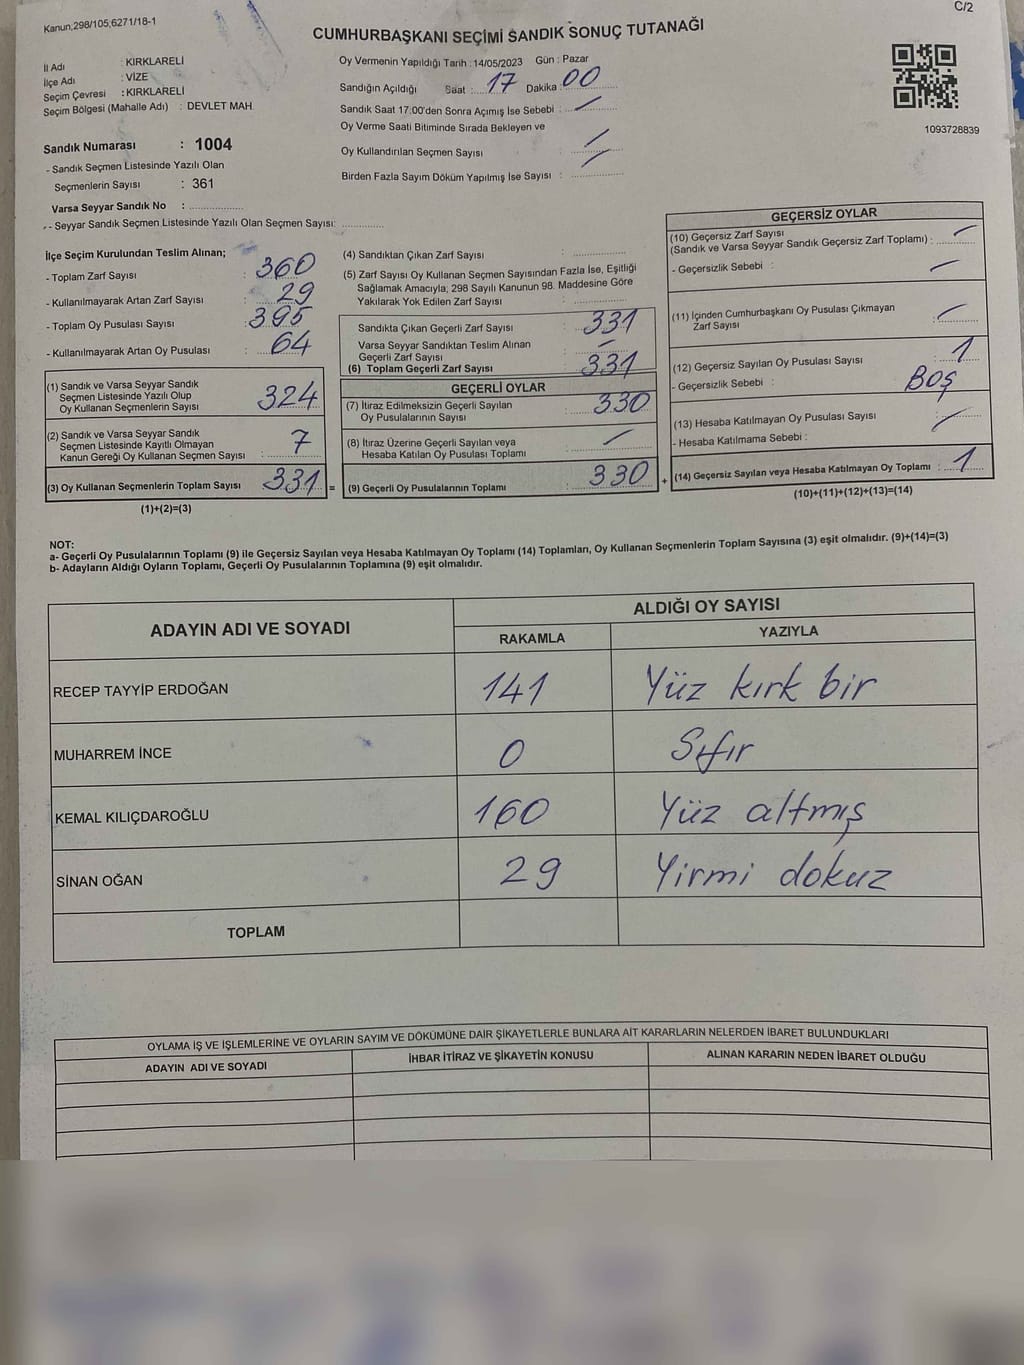 Kanun,298/105;6271/18-1
C/2
CUMHURBAŞKANI SEÇİMİ SANDIK SONUÇ TUTANAĞI
İl Adı : KIRKLARELİ
İlçe Adı : VİZE
Seçim Çevresi : KIRKLARELİ
Seçim Bölgesi (Mahalle Adı) : DEVLET MAH.
Sandık Numarası : 1004
- Sandık Seçmen Listesinde Yazılı Olan
Seçmenlerin Sayısı : 361
Varsa Seyyar Sandık No : ..................
- Seyyar Sandık Seçmen Listesinde Yazılı Olan Seçmen Sayısı: ..............
Oy Vermenin Yapıldığı Tarih :14/05/2023 Gün : Pazar
Sandığın Açıldığı Saat : 17 Dakika : 00
Sandık Saat 17:00'den Sonra Açımış İse Sebebi :
Oy Verme Saati Bitiminde Sırada Bekleyen ve
Oy Kullandırılan Seçmen Sayısı :
Birden Fazla Sayım Döküm Yapılmış İse Sayısı :
1093728839
İlçe Seçim Kurulundan Teslim Alınan;
- Toplam Zarf Sayısı : 360
- Kullanılmayarak Artan Zarf Sayısı : 29
- Toplam Oy Pusulası Sayısı : 395
- Kullanılmayarak Artan Oy Pusulası : 64
(1) Sandık ve Varsa Seyyar Sandık
Seçmen Listesinde Yazılı Olup
Oy Kullanan Seçmenlerin Sayısı 324
(2) Sandık ve Varsa Seyyar Sandık
Seçmen Listesinde Kayıtlı Olmayan
Kanun Gereği Oy Kullanan Seçmen Sayısı : 7
(3) Oy Kullanan Seçmenlerin Toplam Sayısı 331 =
(1)+(2)=(3)
(4) Sandıktan Çıkan Zarf Sayısı :
(5) Zarf Sayısı Oy Kullanan Seçmen Sayısından Fazla İse, Eşitliği
Sağlamak Amacıyla, 298 Sayılı Kanunun 98. Maddesine Göre
Yakılarak Yok Edilen Zarf Sayısı :
Sandıkta Çıkan Geçerli Zarf Sayısı : 331
Varsa Seyyar Sandıktan Teslim Alınan
Geçerli Zarf Sayısı : –
(6) Toplam Geçerli Zarf Sayısı : 331
GEÇERLİ OYLAR
(7) İtiraz Edilmeksizin Geçerli Sayılan
Oy Pusulalarının Sayısı : 330
(8) İtiraz Üzerine Geçerli Sayılan veya
Hesaba Katılan Oy Pusulası Toplamı :
(9) Geçerli Oy Pusulalarının Toplamı : 330 +
GEÇERSİZ OYLAR
(10) Geçersiz Zarf Sayısı
(Sandık ve Varsa Seyyar Sandık Geçersiz Zarf Toplamı) :
- Geçersizlik Sebebi :
(11) İçinden Cumhurbaşkanı Oy Pusulası Çıkmayan
Zarf Sayısı :
(12) Geçersiz Sayılan Oy Pusulası Sayısı : 1
- Geçersizlik Sebebi : BOŞ
(13) Hesaba Katılmayan Oy Pusulası Sayısı :
- Hesaba Katılmama Sebebi :
(14) Geçersiz Sayılan veya Hesaba Katılmayan Oy Toplamı : 1
(10)+(11)+(12)+(13)=(14)
NOT:
a- Geçerli Oy Pusulalarının Toplamı (9) ile Geçersiz Sayılan veya Hesaba Katılmayan Oy Toplamı (14) Toplamları, Oy Kullanan Seçmenlerin Toplam Sayısına (3) eşit olmalıdır. (9)+(14)=(3)
b- Adayların Aldığı Oyların Toplamı, Geçerli Oy Pusulalarının Toplamına (9) eşit olmalıdır.
ADAYIN ADI VE SOYADI ALDIĞI OY SAYISI
RAKAMLA YAZIYLA
RECEP TAYYİP ERDOĞAN 141 Yüz kırk bir
MUHARREM İNCE 0 Sıfır
KEMAL KILIÇDAROĞLU 160 Yüz altmış
SİNAN OĞAN 29 Yirmi dokuz
TOPLAM
OYLAMA İŞ VE İŞLEMLERİNE VE OYLARIN SAYIM VE DÖKÜMÜNE DAİR ŞİKAYETLERLE BUNLARA AİT KARARLARIN NELERDEN İBARET BULUNDUKLARI
ADAYIN ADI VE SOYADI İHBAR İTİRAZ VE ŞİKAYETİN KONUSU ALINAN KARARIN NEDEN İBARET OLDUĞU